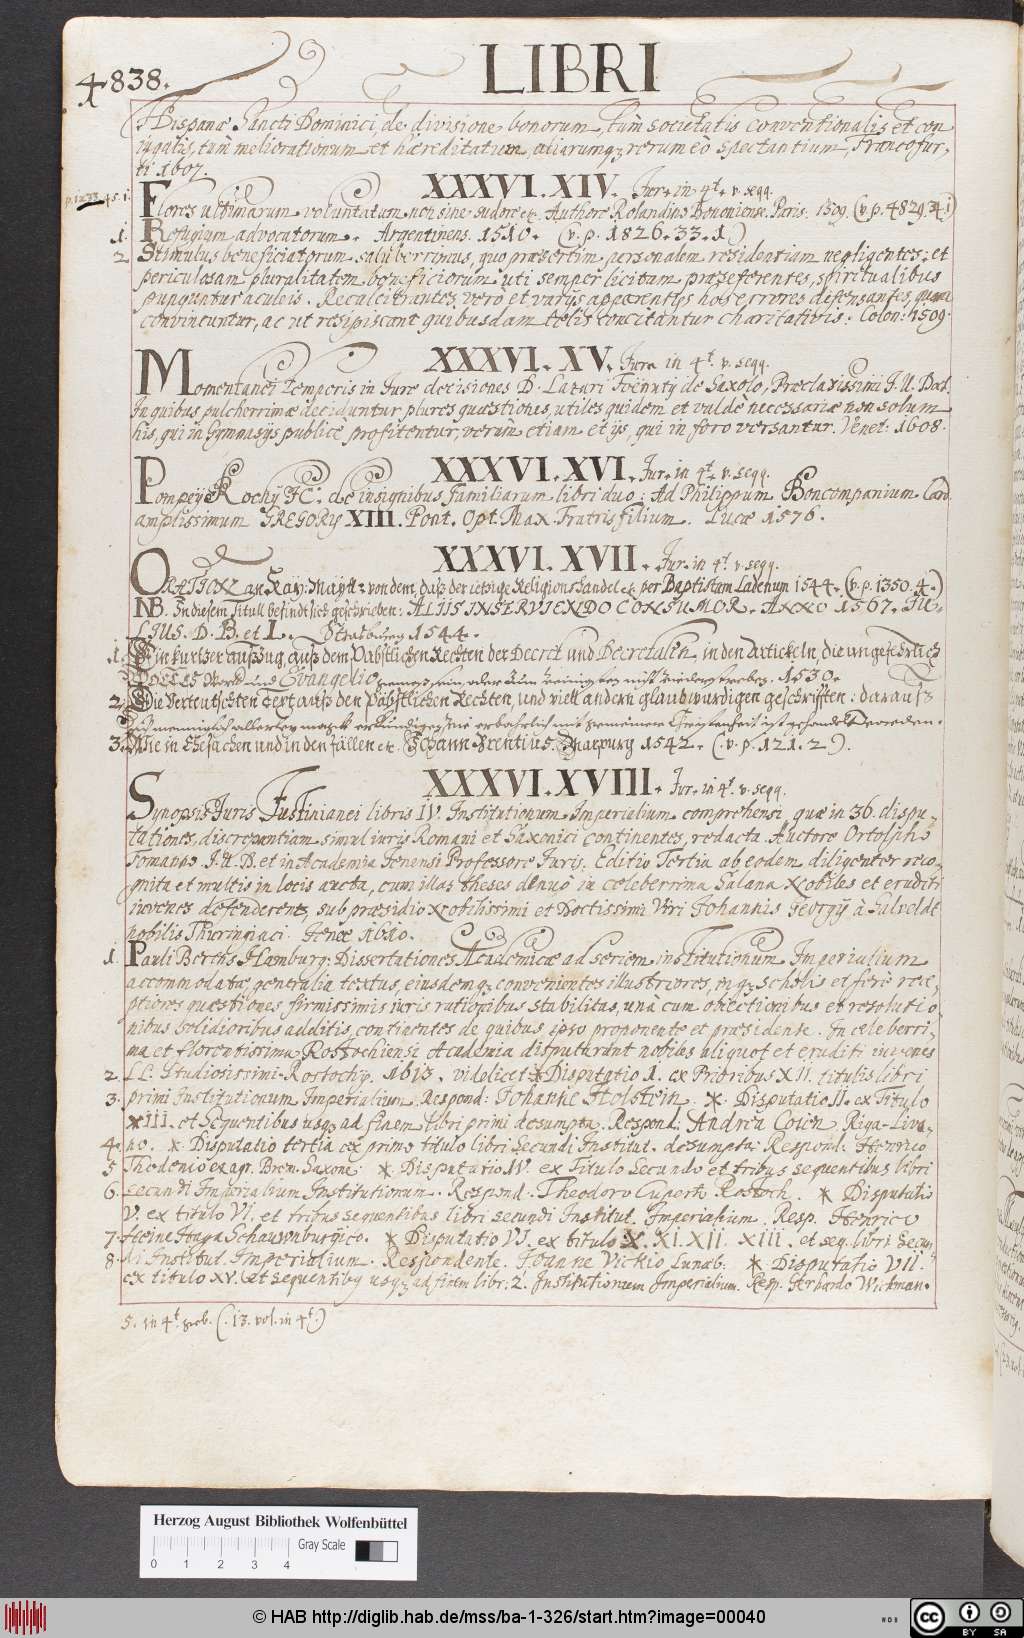 4838.
LIBRI
Hispanæ Sancti Dominici, de divisione bonorum, tùm societatis conventionalis et con
iugalis, tùm meliorationum et hæreditatum, aliarumq; rerum eò spectantium, Francofur,
ti 1607.
XXXVI. XIV. Jur. in 4t. v. seqq.
Flores ultimarum voluntatum non sine sudore etc. Authore Rolandino Bononiense. Paris. 1509. (v. p. 4829.34.1)
1. Refugium advocatorum. Argentinens. 1510. (v. p. 1826.33.1.)
2. Stimulus beneficiatorum saluberrimus, quo præsertim personalem residentiam negligentes, et
periculosam pluralitatem beneficiorum uti semper licitam præseferentes, spiritualibus
punguntur aculeis. Recalcitrantes verò et varijs apparentijs hos errores defensantes, quam
convincuntur, ac ut resipiscant quibusdam telis concitantur charitativis. Colon: 1509.
XXXVI. XV. Jura in 4t. v. seqq.
Momentanei temporis in Jure decisiones D. Lazari de Saxolo, Præclarissimi J. U. Doct.
In quibus pulcherrimæ deciduntur plures quæstiones, utiles quidem et valdè necessariæ non solum
his, qui in Gymnasijs publicè profitentur, verùm etiam et ijs, qui in foro versantur. Venet: 1608.
XXXVI. XVI. Jur. in 4t. v. seqq.
Pompeij Rochij JC. de insignibus familiarum libri duo: Ad Philippum Boncompanium Card.
amplissimum GREGORIJ XIII. Pont. Opt. Max. Fratris filium. Lucæ 1576.
XXXVI. XVII. Jur. in 4t. v. seqq.
ORATION an Kay: Mayst: von dem, daß der ietzige Religions handel etc. per Baptistam Ladenum 1544. (v. p. 1350.4.)
NB. In diesem Titull befindt sich geschrieben: ALIIS INSERVIENDO CONSUMOR. ANNO 1567. JU,
LIUS. D. B. et L. Strasburg 1544.
1. Ein kurtzer außzug, auß dem Päbstlichen Rechten der Decret und Decretalen, in den Artickeln, die ungefehrlich
GOTTES Wort und Evangelio gemeß sein, oder zum wenigsten nicht widerstreben. 1530.
2. Die Verteutschten Text auß den Päbstlichen Rechten, und viell andern glaubwurdigen geschrifften: darauß
3. Wie in Ehesachen und in den fällen etc. Johann Brentius. Marpurg 1542. (v. p. 121.2).
XXXVI. XVIII. Jur. in 4t. v. seqq.
Synopsis Juris Justinianei libris IV. Institutionum Imperialium comprehensi, quæ in 36. dispu,
tationes, discrepantiam simul iuris Romani et Saxonici continentes, redacta. Auctore Ortolpho
Fomanno J. U. D. et in Academia Jenensi Professore Juris. Editio Tertia ab eodem diligenter reco,
gnita et multis in locis aucta, cum illas theses denuò in celeberrima Salana Nobiles et eruditi
iuvenes defenderent, sub præsidio Nobilissimi et Doctissimi Viri Johannis Georgij à Sulveldt
nobilis Thuringiaci. Jenæ 1610.
1. Pauli Berchs Hamburg: Dissertationes Academicæ ad seriem institutionum Imperialium
accommodatæ, generalia textus, eiusdemq; convenientes illustriores, inq; scholis et ferè rece,
ptiores quæstiones firmissimis iuris rationibus stabilitas, unà cum obiectionibus et resolutio,
nibus solidioribus additis, continentes de quibus ipso proponente et præsidente. In celeberri,
ma et florentissima Rostochiensi Academia disputârunt nobiles aliquot et eruditi iuvenes
2. LL. Studiosissimi. Rostochij. 1613. videlicet * Disputatio I. ex Prioribus XII. titulis libri
3. primi Institutionum Imperialium. Respond: Johanne Holstein. * Disputatio II. ex Titulo
XIII. et sequentibus usq; ad finem libri primi desumpta. Respond: Andrea Coien Riga-Livo,
4. no. * Disputatio tertia ex primo titulo libri secundi Institut. desumpta: Respond: Henrico
5. Thedenio ex agr. Brem. Saxone. * Disputatio IV. ex Titulo secundo et tribus sequentibus libri
6. secundi Imperialium Institutionum. Respond. Theodoro Cuperto Rostoch. * Disputatio
V. ex titulo VI. et tribus sequentibus libri secundi Institut. Imperialium. Resp. Henrico
7. Heine Haga Schauenburgico. * Disputatio VI. ex titulo X. XI. XII. XIII. et seq. libri Secun,
8. di Institut. Imperialium. Respondente. Joanne Vickio Lunæb: * Disputatio VII.
ex titulo XV. et sequentibq usq; ad finem libr: 2. Institutionum Imperialium. Resp. Gerhardo Wichman.
5. in 4t. (. 13. vol. in 4t.)
Herzog August Bibliothek Wolfenbüttel
Gray Scale
0 1 2 3 4
© HAB http://diglib.hab.de/mss/ba-1-326/start.htm?image=00040
WDB
CC BY SA